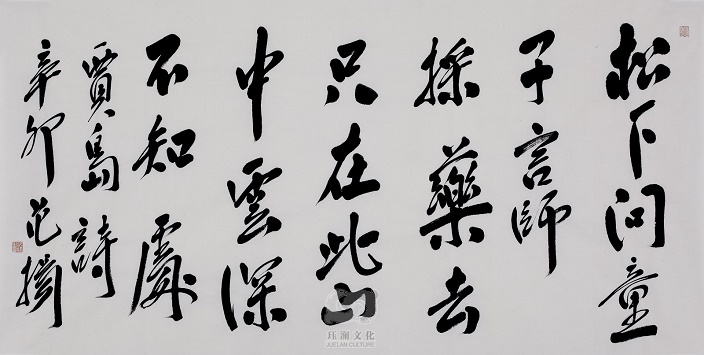 松下问童
子言師
採藥去
只在此山
中雲深
不知處
賈島詩
辛卯
珏澜文化
JUELAN CULTURE